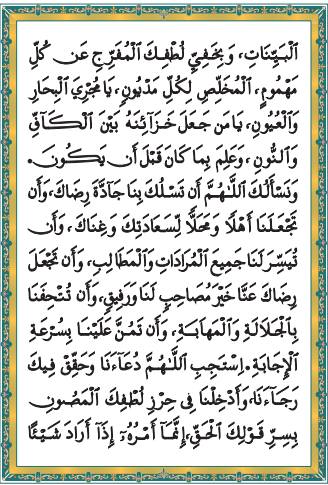 الْبَيِّنَاتِ، وَبِخَفِيِّ لُطْفِكَ الْمُفَرِّجِ عَنْ كُلِّ
مَهْمُومٍ، الْمُخَلِّصِ لِكُلِّ مَدْيُونٍ، يَا مُجْرِيَ الْبِحَارِ
وَالْعُيُونِ، يَا مَن جَعَلَ خَزَآئِنَهُ بَيْنَ الْكَافِ
وَالنُّونِ، وَعَلِمَ بِمَا كَانَ قَبْلَ أَن يَكُونَ.
وَنَسْأَلُكَ اللَّهُمَّ أَن تَسْلُكَ بِنَا جَآدَّةَ رِضَاكَ، وَأَن
تَجْعَلَنَا أَهْلًا وَمَحَلًّا لِّسَعَادَتِكَ وَغِنَاكَ، وَأَن
تُيَسِّرَ لَنَا جَمِيعَ الْمُرَادَاتِ وَالْمَطَالِبِ، وَأَن تَجْعَلَ
رِضَاكَ عَنَّا خَيْرَ مُصَاحِبٍ لَنَا وَرَفِيقٍ، وَأَن تُتْحِفَنَا
بِالْجَلَالَةِ وَالْمَهَابَةِ، وَأَن تَمُنَّ عَلَيْنَا بِسُرْعَةِ
الْإِجَابَةِ. اِسْتَجِبِ اللَّهُمَّ دُعَآءَنَا وَحَقِّقْ فِيكَ
رَجَآءَنَا، وَأَدْخِلْنَا فِى حِرْزِ لُطْفِكَ الْمَصُونِ
بِسِرِّ قَوْلِكَ الْحَقِّ، إِنَّمَآ أَمْرُهُۥٓ إِذَآ أَرَادَ شَيْـًٔا